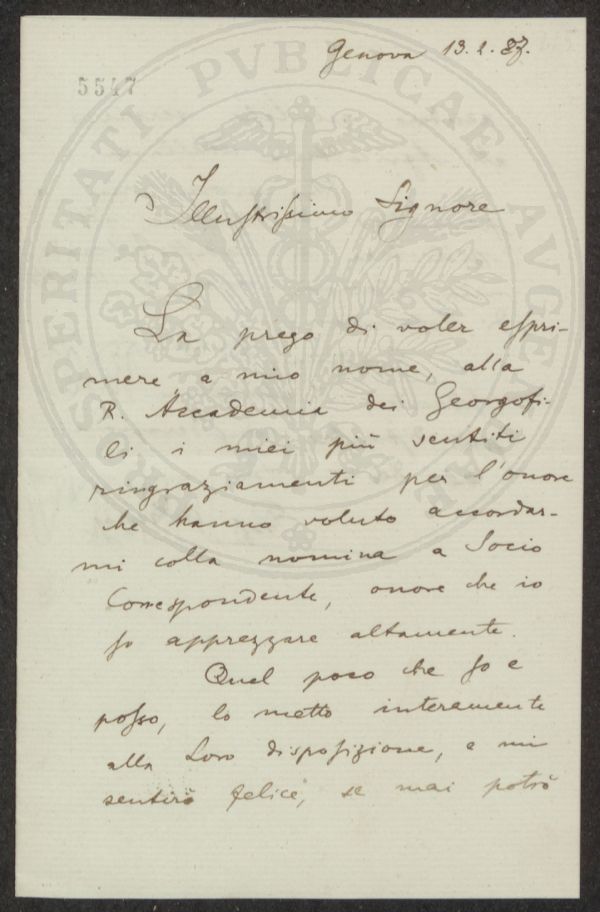 Genova 13.2.87.
5547
PROSPERITATI PVBLICAE AVGENDAE
Illustrissimo Signore
La prego di voler espri-
mere, a mio nome, alla
R. Accademia dei Georgofi-
li i miei più sentiti
ringraziamenti per l'onore
che hanno voluto accordar-
mi colla nomina a Socio
Corrispondente, onore che io
so apprezzare altamente.
Quel poco che so e
posso, lo metto interamente
alla Loro disposizione, e mi
sentirò felice, se mai potrò